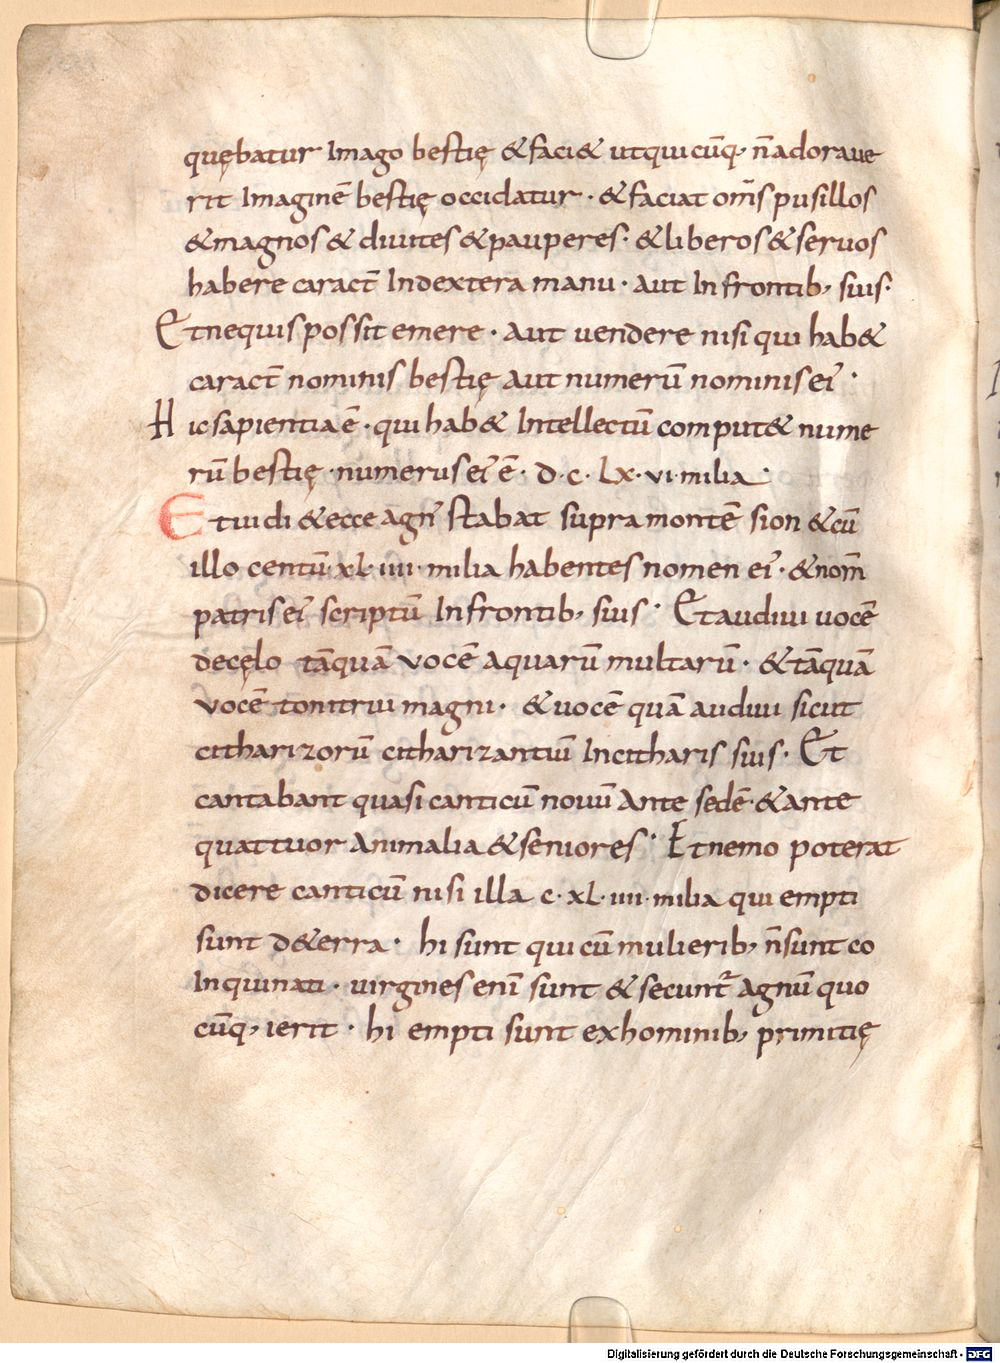 quębatur Imago bestię &faci& utquicūq, n̄adoraue
rit Imaginē bestię occidatur · &faciat om̄s pusillos
&magnos& diuites &pauperes · &liberos &seruos
habere caract̄ Indextera manu · aut Infrontib, suis·
Etnequis possit emere · aut uendere nisi qui hab&
caract̄ nominis bestię aut numerū nominis ei᾽ ·
Hic sapientia ē · qui hab& Intellectū comput& nume
rū bestię · numerus ei᾽ ē · d · c · Lx · vi · milia ·
Etuidi &ecce agn᾽ stabat supra montē sion &cū
illo centū · xL · iiii · milia habentes nomen ei᾽ · &nom̄
patris ei᾽ scriptū Infrontib, suis · Etaudiui uocē
decęlo tāquā vocē aquarū multarū · &tāquā
vocē tonitrui magni · &uocē quā audiui sicut
citharizorū citharizantiū Incitharis suis · Et
cantabant quasi canticū nouū Ante sedē · &ante
quattuor Animalia &seniores · Etnemo poterat
dicere canticū nisi illa c · xL · iiii · milia qui empti
sunt d&erra · hi sunt qui cū mulierib, n̄sunt co
Inquinati · uirgines enī sunt &secunt᾽ agnū quo
cūq, ierit · hi empti sunt exhominib, primitię
Digitalisierung gefördert durch die Deutsche Forschungsgemeinschaft - DFG